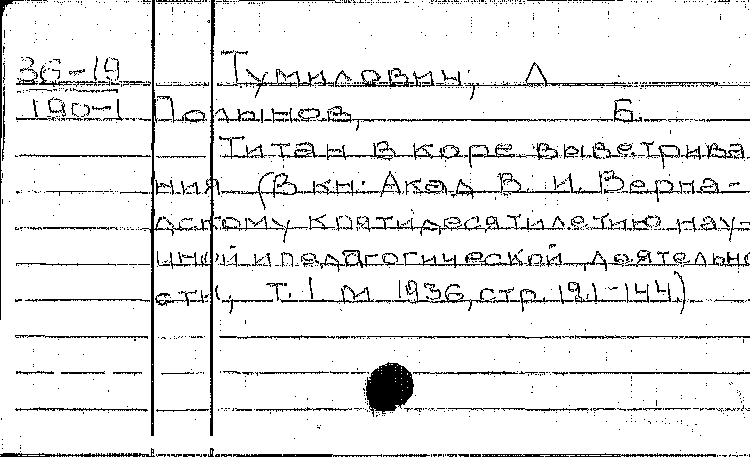 36-19 Тумилович, Л
190-1 Полынов, Б.
Титан в коре выветрива
ния (В кн: Акад В. И. Верна-
дскому к пятидесятилетию нау-
чной и педагогической деятельно
сти, Т. I М 1936, стр. 121-144)